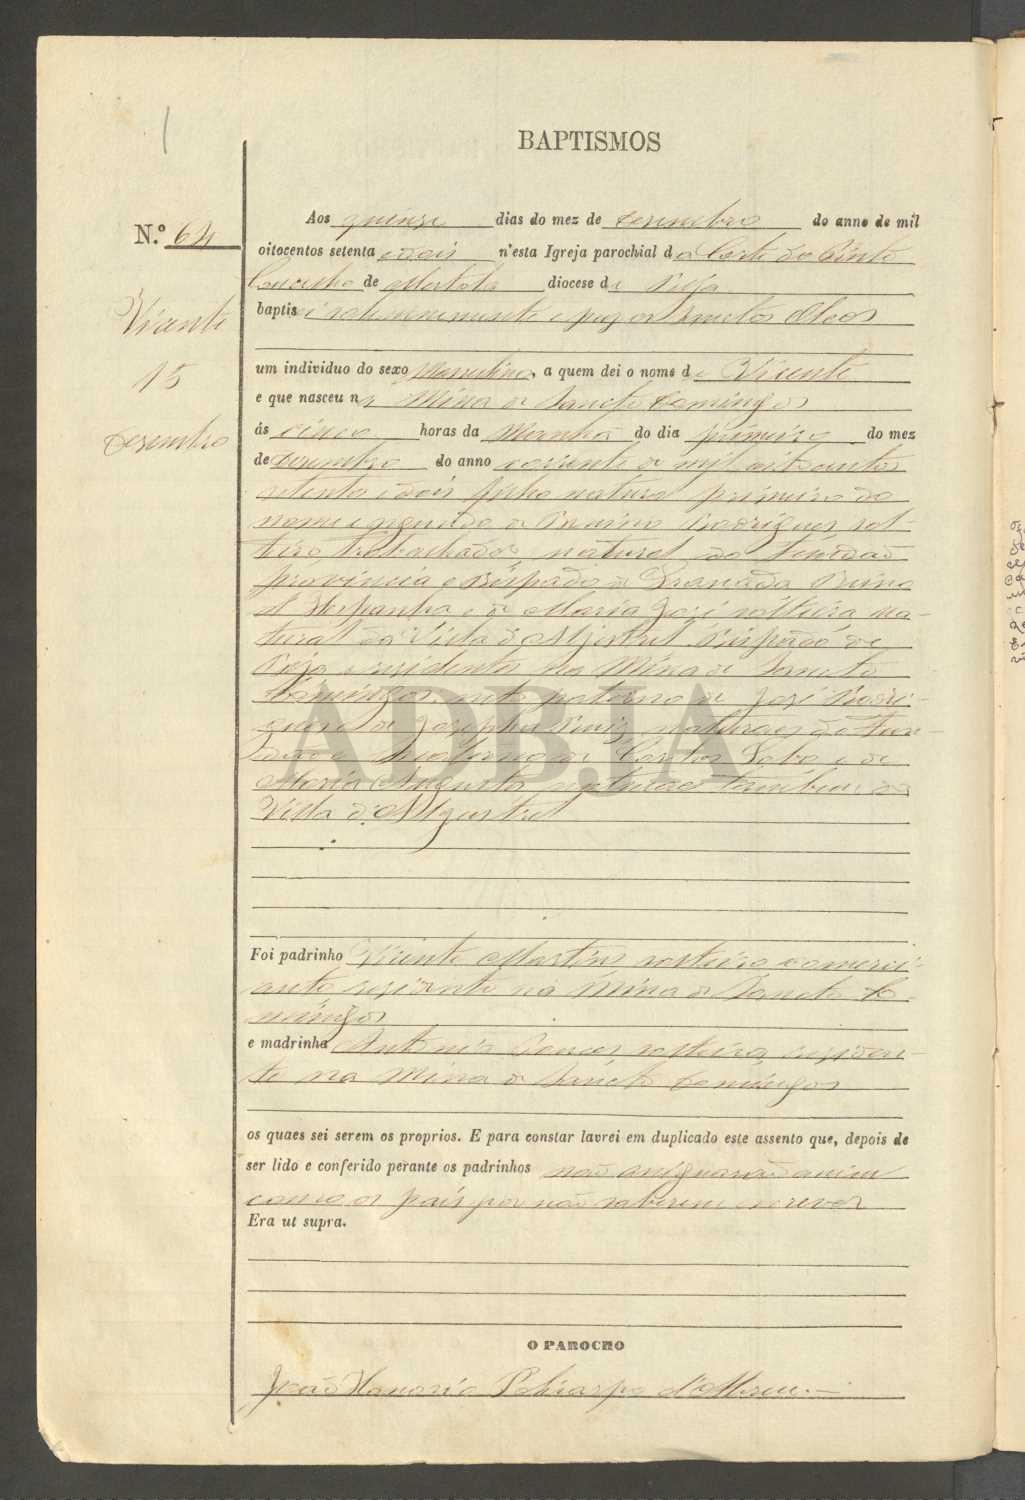 BAPTISMOS
N.º 64
Vicente
15
Desembro
Aos quinze dias do mez de Desembro do anno de mil
oitocentos setenta e dois n'esta Igreja parochial da Corte do Pinto
Concelho de Mertola diocese de Beja
baptisei solemnemente e puz os Sanctos Oleos
um individuo do sexo Masculino, a quem dei o nome de Vicente
e que nasceu na Mina de Sancto Domingos
ás cinco horas da Manhã do dia primeiro do mez
de Desembro do anno corrente de mil oitocentos
setenta e dois filho natural primeiro do
nome e segundo de Rodrigues sol-
teiro trabalhador natural do
provincia e Bispado de Granada Reino
d'Hespanha e de Maria José solteira na-
tural da Villa d'Aljustrel Bispado de
Beja e residente na Mina de Sancto
Domingos neto paterno de José Rodri-
gues e de Josepha Ruiz naturaes do
e Materno de Carlos Lobo e de
Maria Augusta naturaes tambem da
Villa d'Aljustrel
Foi padrinho Vicente Martins solteiro comerci-
ante residente na Mina de Sancto Do-
mingos
e madrinha Antonia solteira residen-
te na Mina de Sancto Domingos
os quaes sei serem os proprios. E para constar lavrei em duplicado este assento que, depois de
ser lido e conferido perante os padrinhos não assignarão assim
como os pais por não saberem escrever
Era ut supra.
O PAROCHO
João Honorio Policarpo d'Abreu
ADBJA